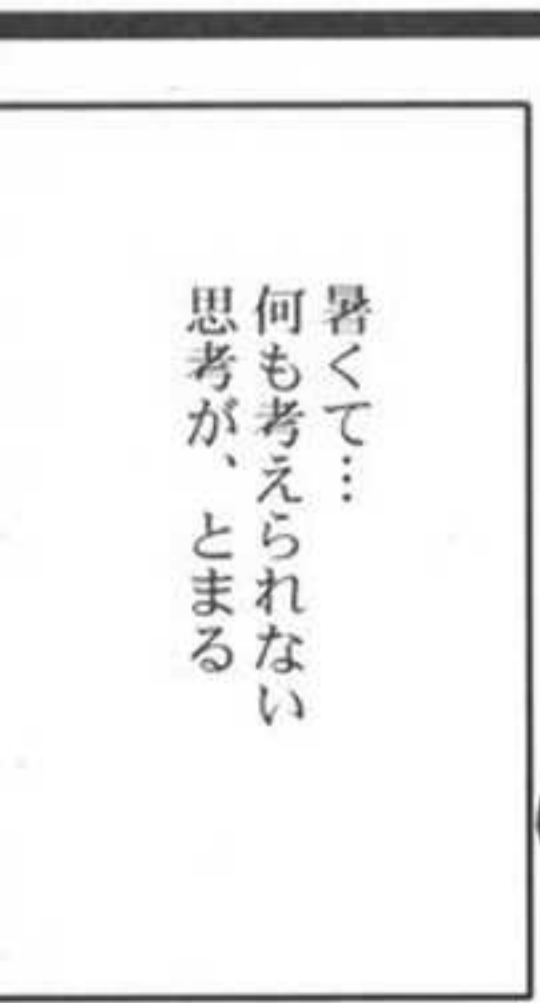 暑くて…
何も考えられない
思考が、とまる